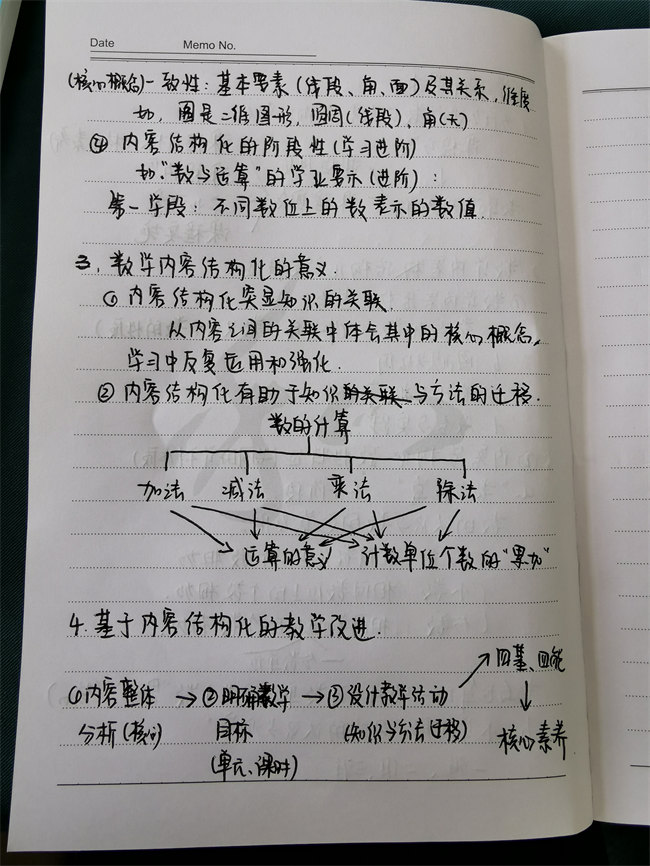 Date Memo No.
(核心概念)一致性：基本要素(线段、角、面)及其关系，维度
如，圆是二维图形，圆周(线段)、角(无)
④ 内容结构化的阶段性(学习进阶)
如"数与运算"的学业要示(进阶)：
第一学段：不同数位上的数表示的数值.
3. 数学内容结构化的意义.
① 内容结构化突显知识的关联.
从内容之间的关联中体会其中的核心概念,
学习中反复运用和强化.
② 内容结构化有助于知识的关联与方法的迁移.
数的计算
加法 减法 乘法 除法
运算的意义 计数单位个数的"累加"
4. 基于内容结构化的教学改进.
四基、四能
①内容整体 → ②明确教学 → ③设计教学活动
分析(核心) 目标 (知识与方法迁移) 核心素养
(单元、课时)